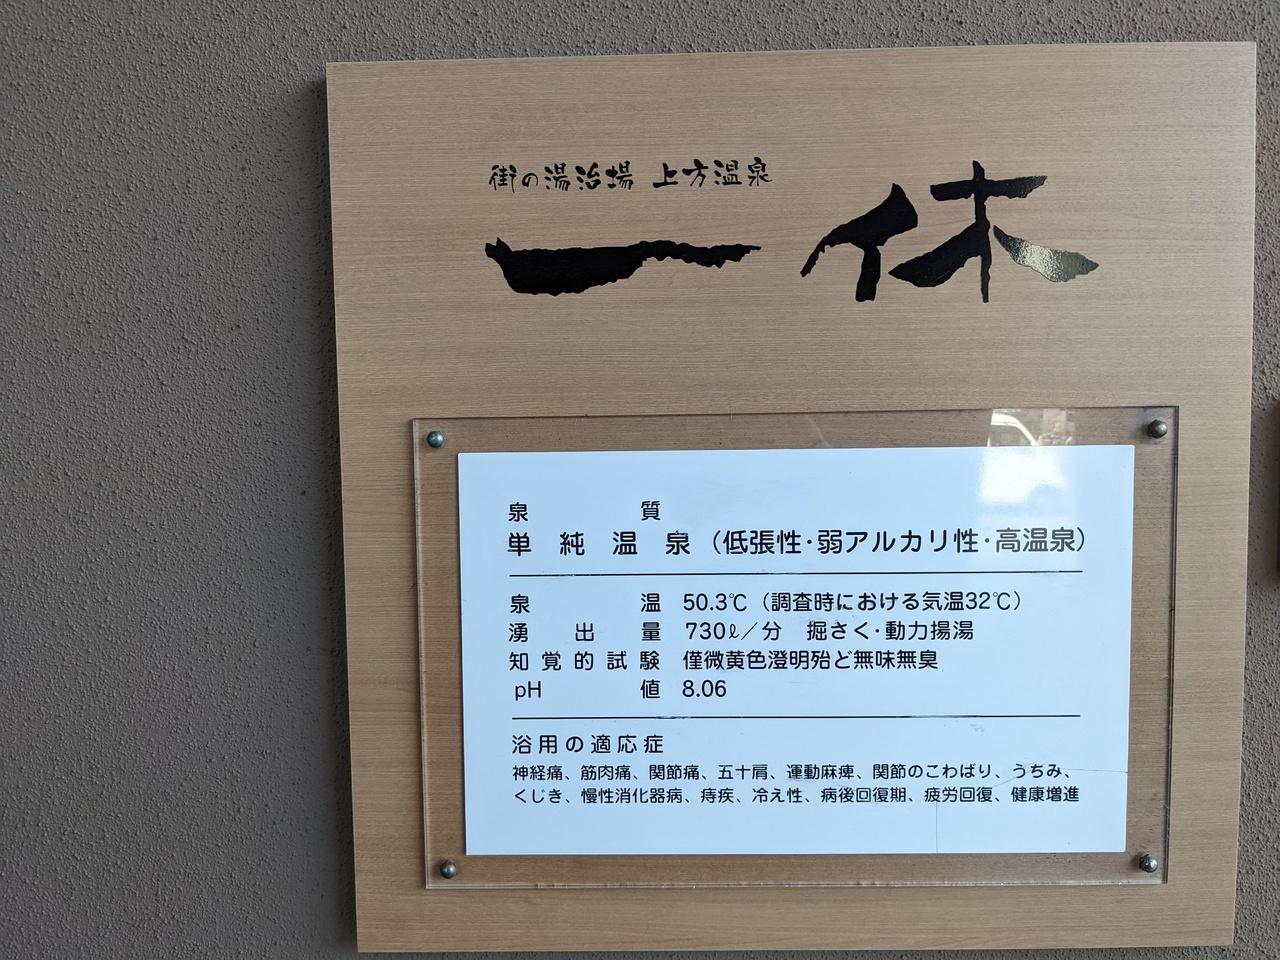 街の湯治場 上方温泉
一休
泉質
単純温泉（低張性・弱アルカリ性・高温泉）
泉温 50.3℃（調査時における気温32℃）
湧出量 730ℓ／分 掘さく・動力揚湯
知覚的試験 僅微黄色澄明殆ど無味無臭
pH値 8.06
浴用の適応症
神経痛、筋肉痛、関節痛、五十肩、運動麻痺、関節のこわばり、うちみ、
くじき、慢性消化器病、痔疾、冷え性、病後回復期、疲労回復、健康増進